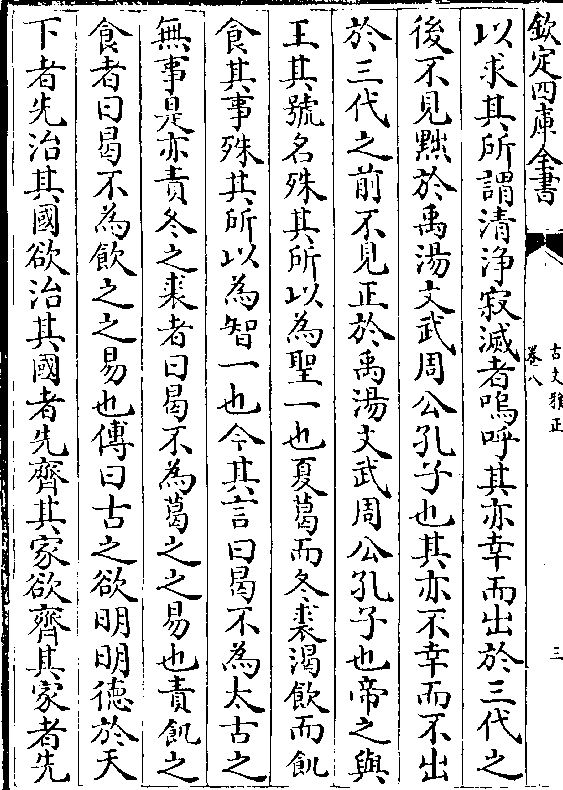 欽定四庫全書
古文雅正
卷八
三
以求其所謂清浄寂滅者嗚呼其亦幸而出於三代之
後不見黜於禹湯文武周公孔子也其亦不幸而不出
於三代之前不見正於禹湯文武周公孔子也帝之與
王其號名殊其所以為聖一也夏葛而冬裘渴飲而飢
食其事殊其所以為智一也今其言曰曷不為太古之
無事是亦責冬之裘者曰曷不為葛之之易也責飢之
食者曰曷不為飲之之易也傳曰古之欲明明德於天
下者先治其國欲治其國者先齊其家欲齊其家者先